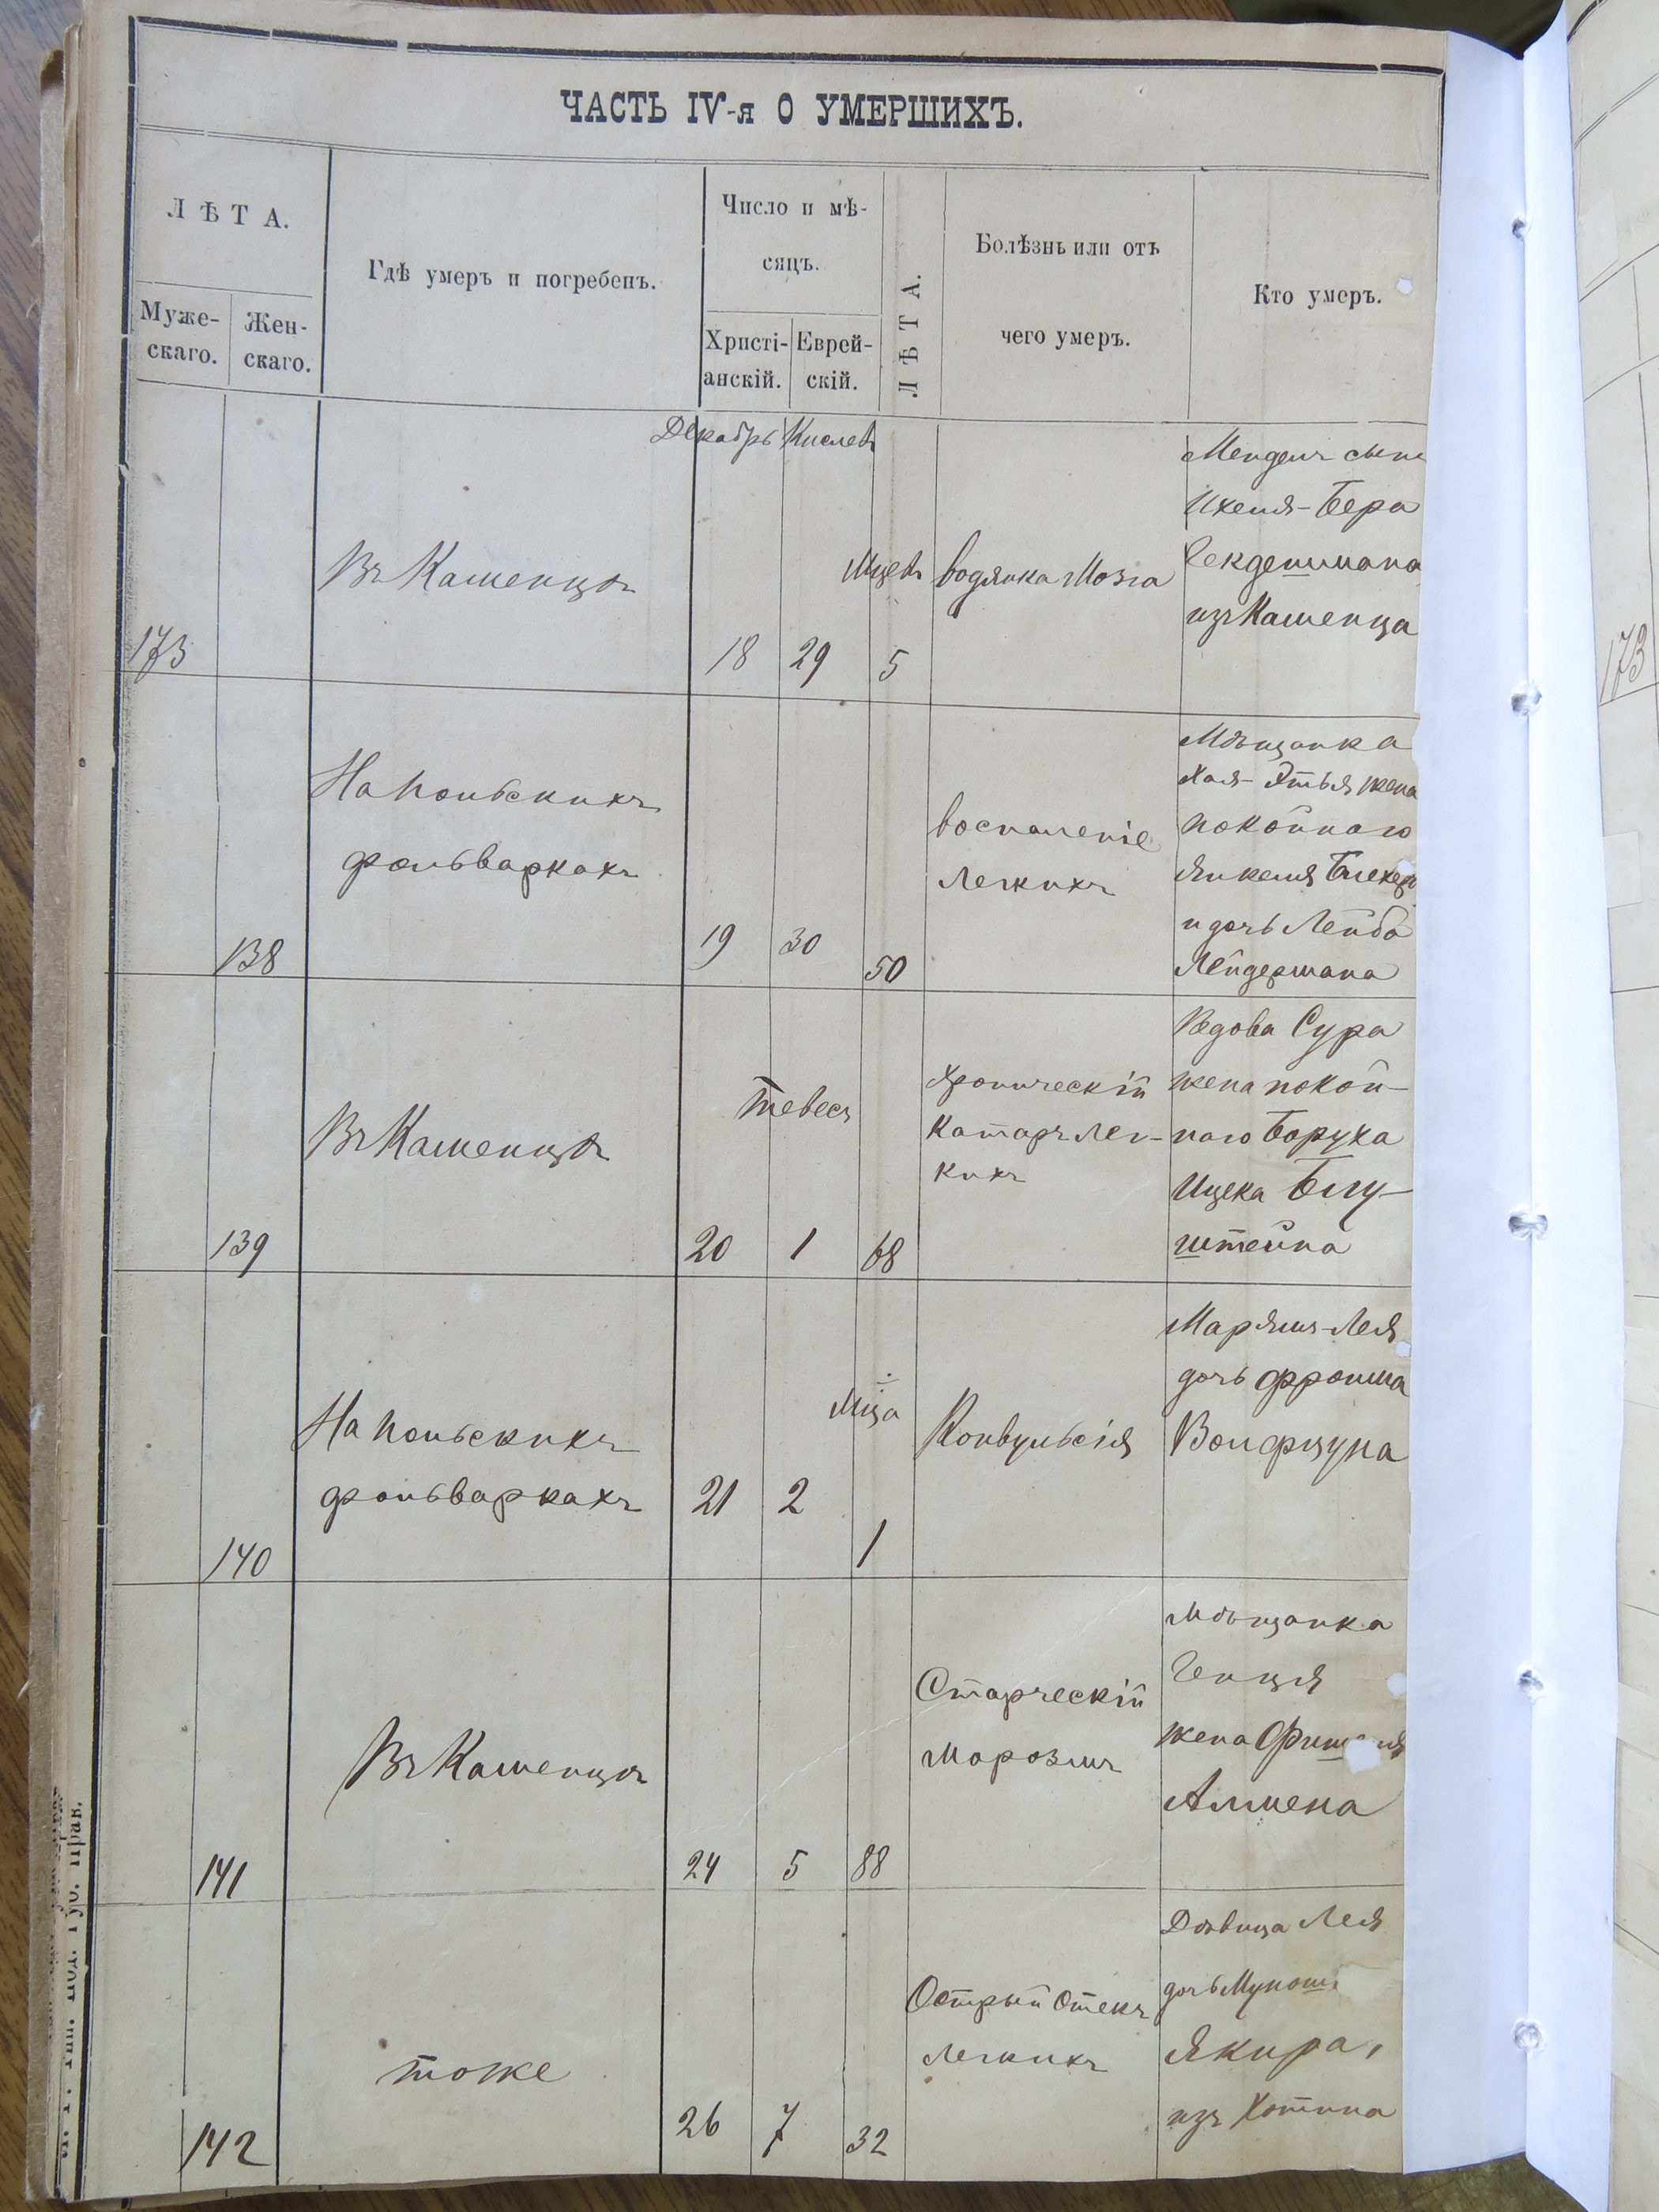 ЧАСТЬ IV-я О УМЕРШИХЪ.
ЛѢТА.
Муже-
скаго.
Жен-
скаго.
Гдѣ умеръ и погребенъ.
Число и мѣ-
сяцъ.
Христі-
анскій.
Еврей-
скій.
ЛѢТА.
Болѣзнь или отъ
чего умеръ.
Кто умеръ.
Декабрь Кислевъ
173
Въ Каменцѣ
18 29
Мцевъ
5
водянка мозга
Мендель сынъ
Ихеля-Бера
из Каменца
138
На польскихъ
фольваркахъ
19 30
50
воспаленіе
легкихъ
Мѣщанка
Хая-Этья жена
покойнаго
Янкеля
и дочь Лейба
Лейдермана
139
Въ Каменцѣ
Тевесъ
20 1 68
Хроническій
Катаръ лег-
кихъ
Вдова Сура
жена покой-
наго Боруха
Ицека Блу-
штейна
140
На польскихъ
фольваркахъ
21 2
Мца
1
Конвульсія
Марямъ-Лея
дочь Фроима
Вольфцуна
141
Въ Каменцѣ
24 5 88
Старческій
маразмъ
Мѣщанка
Генця
жена
Алмена
142
тоже
26 7 32
Острый отекъ
легкихъ
Дѣвица Лея
дочь
Якира,
изъ Хотина
173